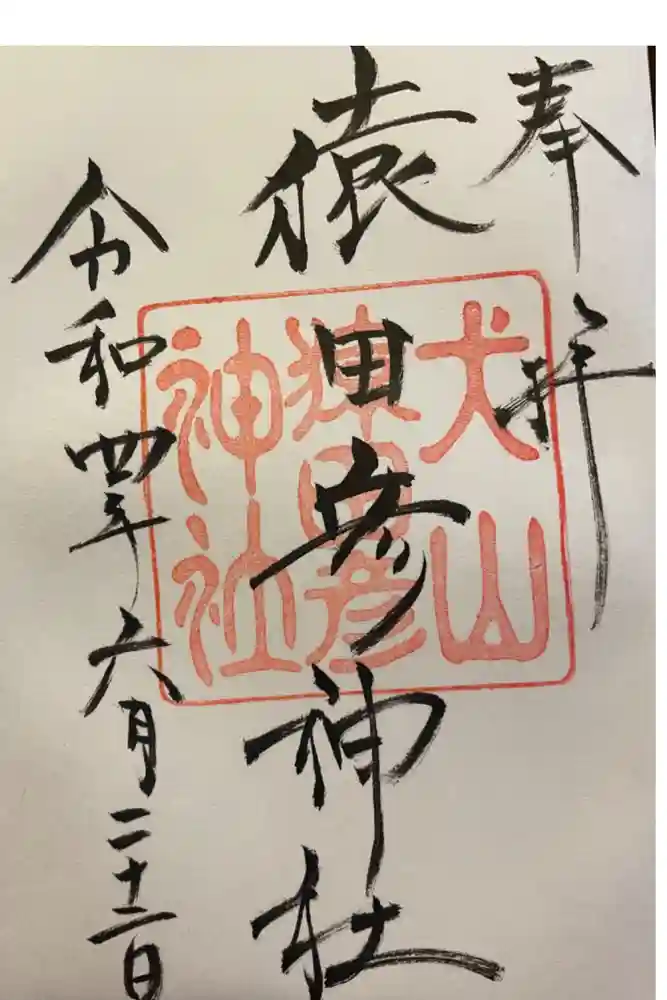 奉拝
犬山
猿田彦
神社
猿田彦神社
令和四年六月二十二日